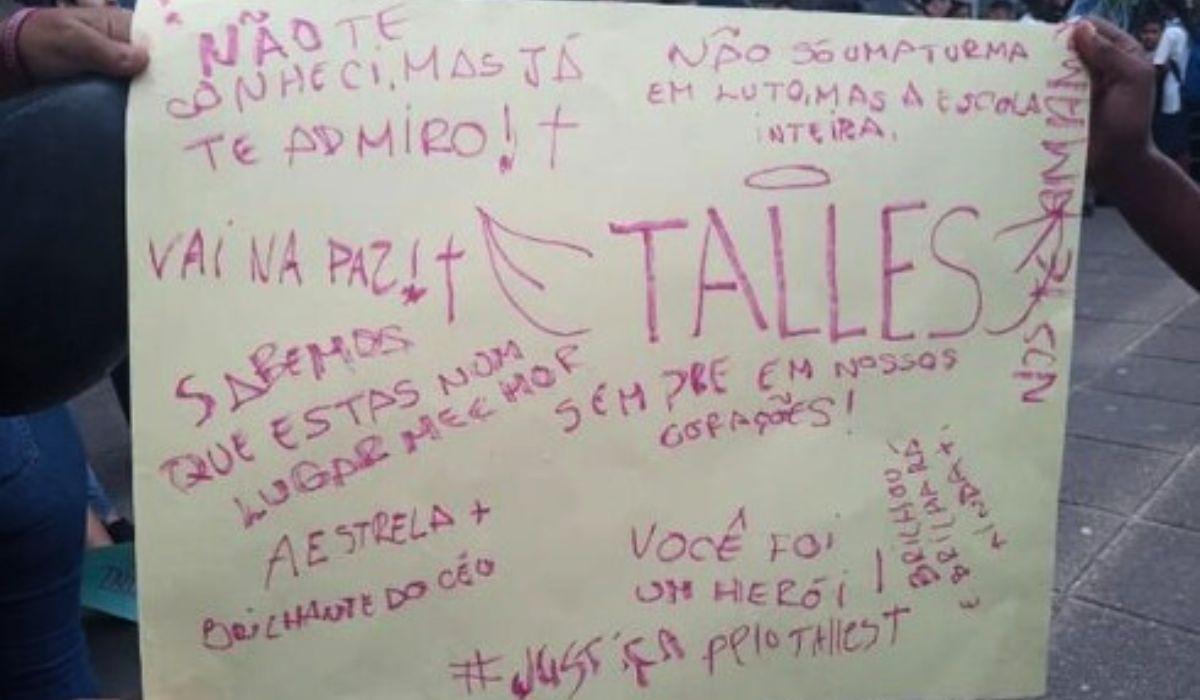 NÃO TE
CONHECI, MAS JÁ
TE ADMIRO! †
NÃO SÓ UMA TURMA
EM LUTO, MAS A ESCOLA
INTEIRA.
VAI NA PAZ! †
TALLES
SEMPRE EM NOSSOS
CORAÇÕES!
SABEMOS
QUE ESTAS NUM
LUGAR MEEHOR
A ESTRELA +
BRICHANTE DO CÉU
VOCÊ FOI
UM HIERÓI
BRICHOU
E
BRICHARÁ
AINDA +
#JUSTIÇA PELO TALLES †
NOS